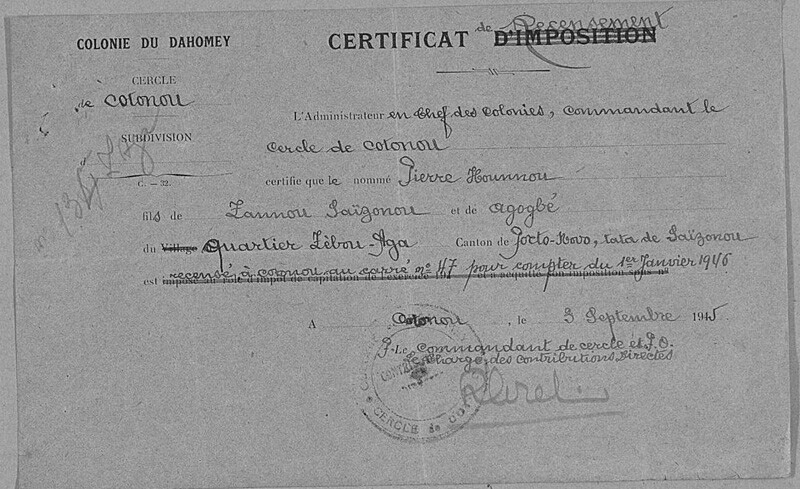 COLONIE DU DAHOMEY
CERTIFICAT de Recensement D'IMPOSITION
CERCLE
de Cotonou
SUBDIVISION
d
C. — 32.
L'Administrateur en Chef des Colonies, Commandant le
Cercle de Cotonou
certifie que le nommé Pierre Hounnou
fils de Zannou Saïzonou et de Agogbé
du Village Quartier Zèbou-Aga Canton de Porto-Novo, tata de Saïzonou
est recensé à Cotonou au carré nº 47 pour compter du 1er Janvier 1946
A Cotonou, le 3 Septembre 1945
P. Le Commandant de cercle et P.O.
Chargé des Contributions Directes
CERCLE de COTONOU